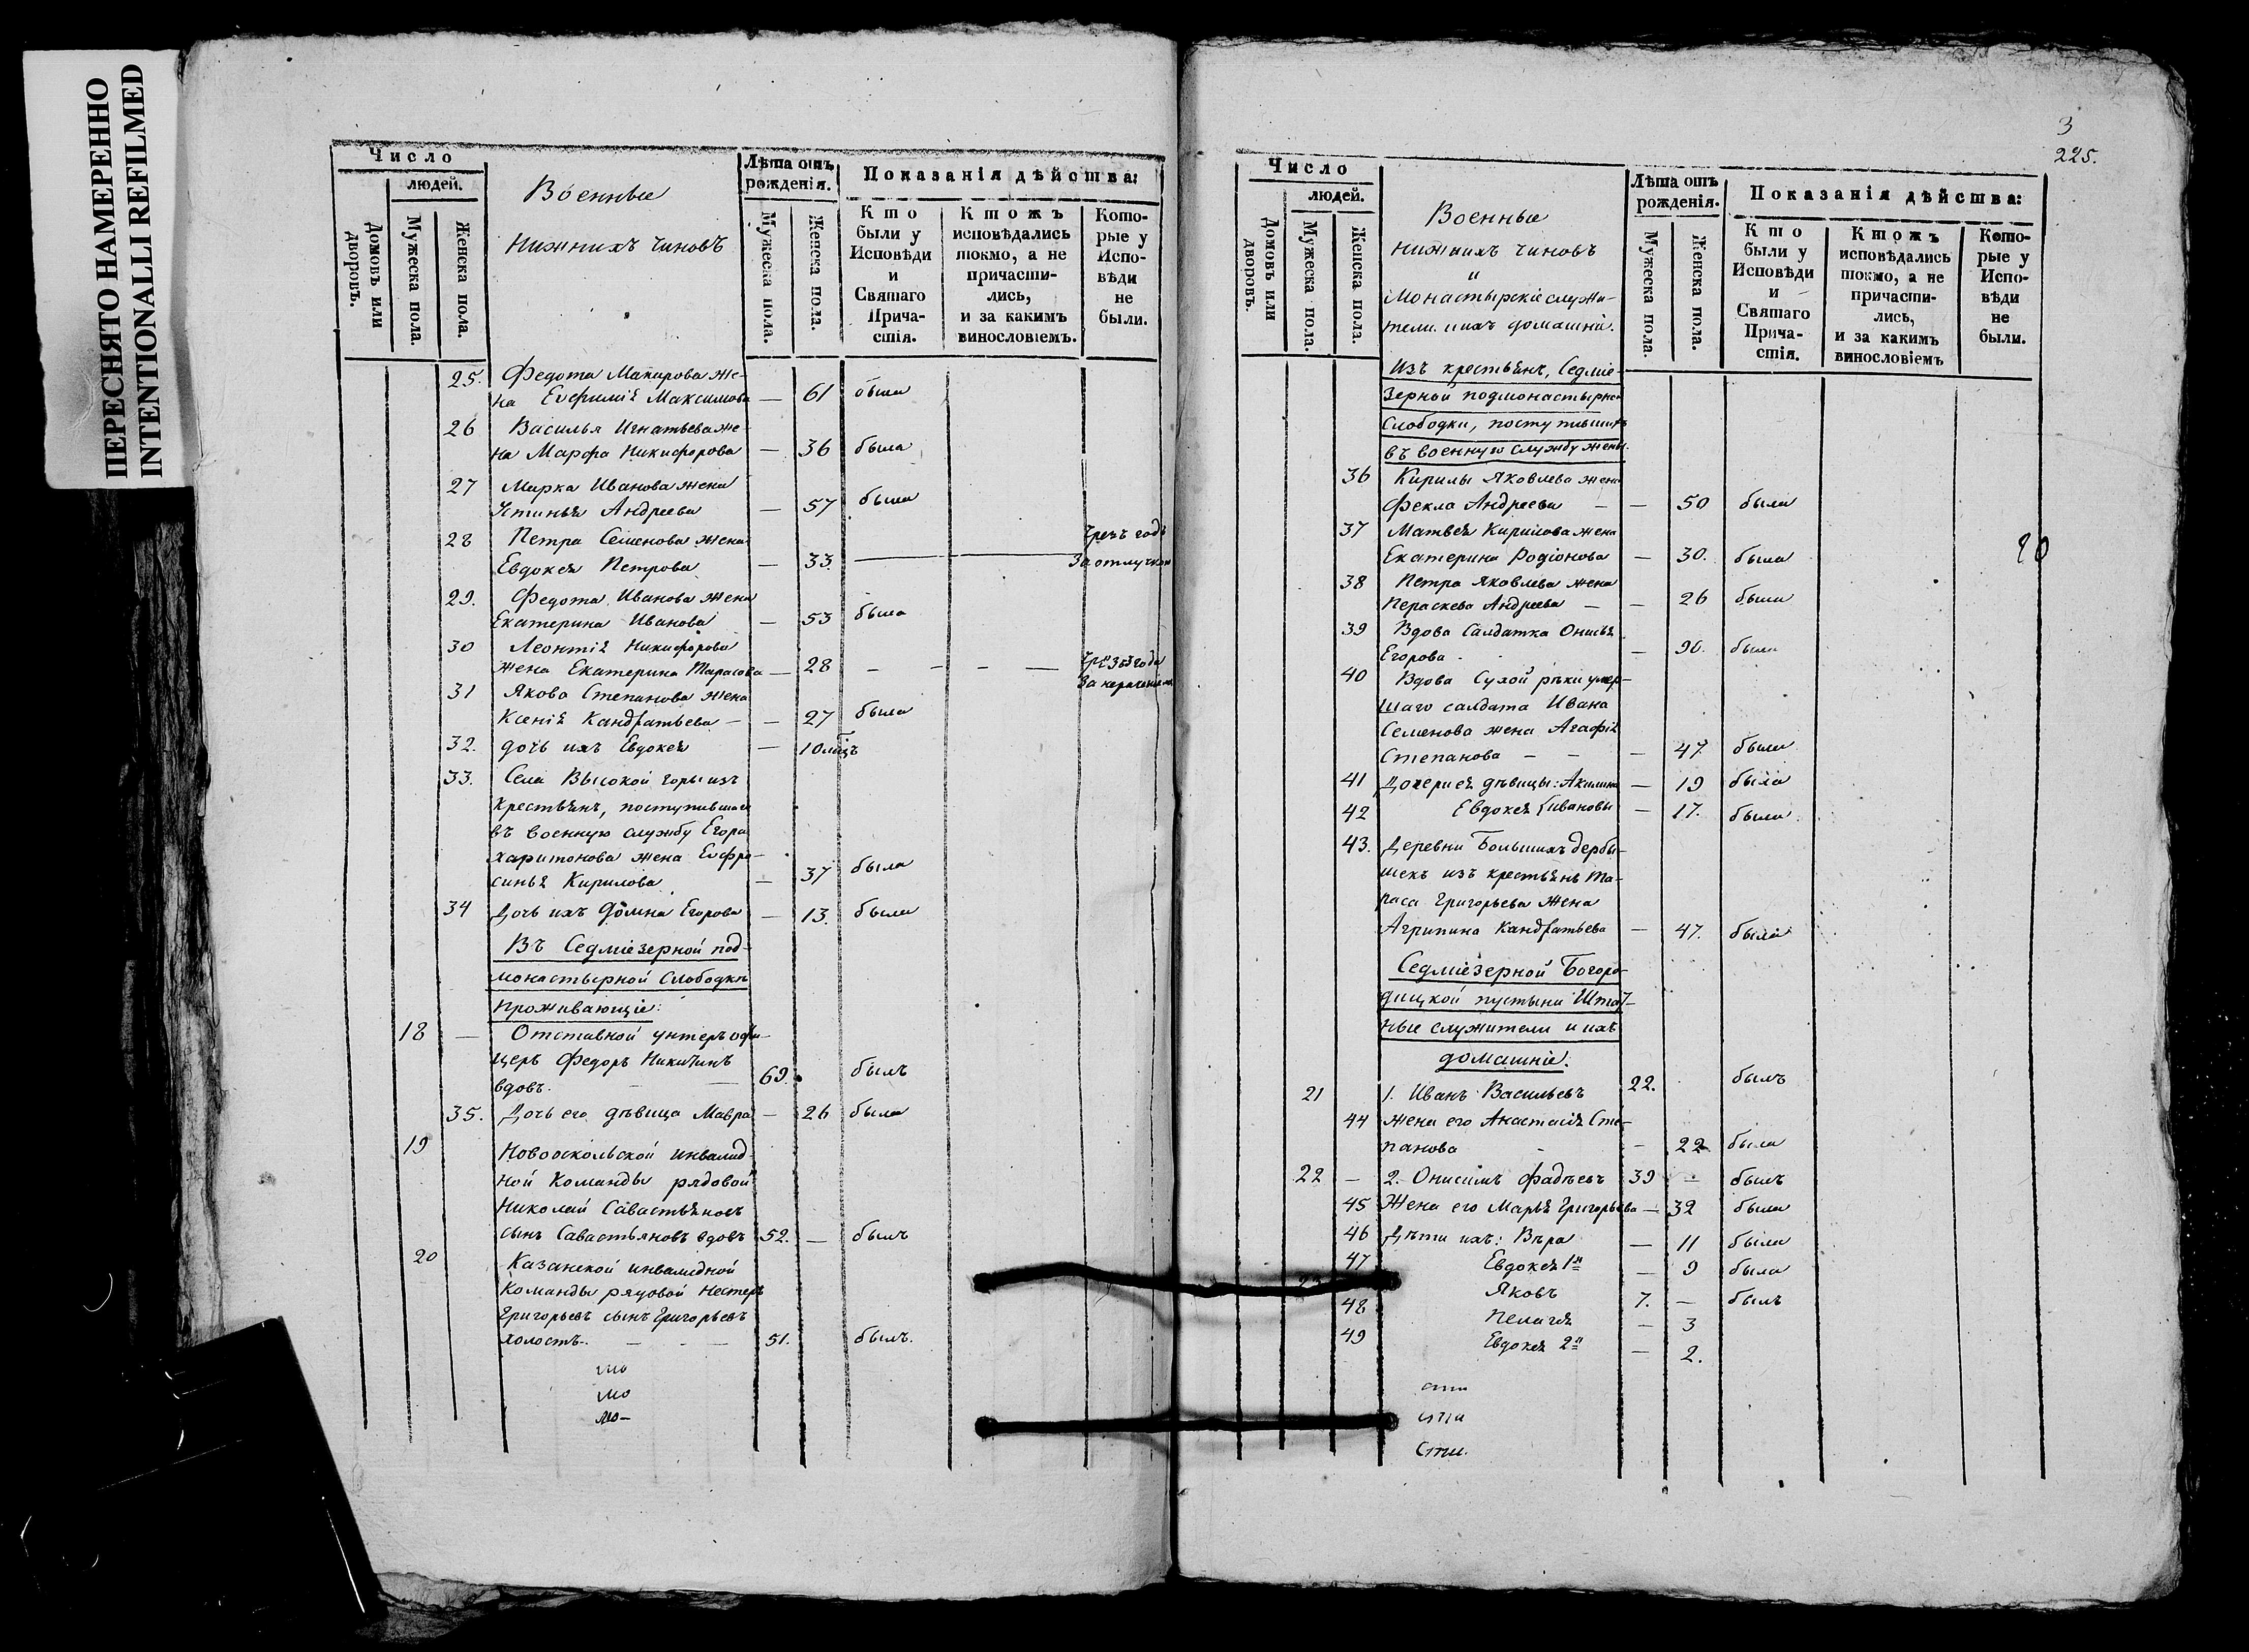 ПЕРЕСНЯТО НАМЕРЕННО
INTENTIONALLI REFILMED
Число
людей.
Домовъ или дворовъ.
Мужеска пола.
Женска пола.
Военные
нижнихъ чиновъ
Лѣта отъ рожденія.
Мужеска пола.
Женска пола.
Показанія дѣйства:
Кто были у Исповѣди и Святаго Прича-стія.
Ктожъ исповѣдались токмо, а не причасти-лись, и за какимъ винословіемъ.
Кото-рые у Испо-вѣди не были.
25. Федота Макарова же-
на Евфимія Максимова — 61 была
26 Василья Игнатьева же-
на Марфа Никифорова — 36 была
27 Марка Иванова жена
Устинья Андреева — 57 была
28 Петра Семенова жена Чрезъ годъ
Евдокея Петрова — 33. За отлучкою
29. Федота Иванова жена
Екатерина Иванова — 53 была
30 Леонтія Никифорова
жена Екатерина Тарасова — 28 — — — —
31 Якова Степанова жена
Ксенія Кандратьева — — 27 была
32. дочь ихъ Евдокея — 10 мѣцъ
33. Села Высокой горы изъ
крестьянъ, поступившаго
въ военную службу Егора
Харитонова жена Евфро-
синья Кирилова — 37 была
34 Дочь ихъ Домна Егорова — 13. была
Въ Седміезерной под-
монастырной Слободкѣ
Проживающіе:
18 — Отставной унтеръ офи-
церъ Федоръ Никитинъ
вдовъ. — — 69. былъ
35. Дочь его дѣвица Мавра — 26 была
19 Новооскольской инвалид-
ной Команды рядовой
Николай Савастьяновъ
сынъ Савастьяновъ вдовъ 52. — былъ
20 Казанской инвалидной
Команды рядовой Нестеръ
Григорьевъ сынъ Григорьевъ
холостъ. — — — 51. былъ.
мо
мо
мо-
3
225.
Число
людей.
Домовъ или дворовъ.
Мужеска пола.
Женска пола.
Военные
нижнихъ чиновъ
и
Монастырскіе служи-
тели и ихъ домашніе.
Лѣта отъ рожденія.
Мужеска пола.
Женска пола.
Показанія дѣйства:
Кто были у Исповѣди и Святаго Прича-стія.
Ктожъ исповѣдались токмо, а не причасти-лись, и за какимъ винословіемъ
Кото-рые у Испо-вѣди не были.
Изъ крестьянъ, Седміе-
зерной подмонастырной
Слободки, поступившихъ
въ военную службу жены.
36 Кирилы Яковлева жена
Фекла Андреева — — 50 была
37 Матвея Кирилова жена
Екатерина Родіонова — 30. была
20
38 Петра Яковлева жена
Пераскева Андреева — — 26 была
39 Вдова Салдатка Онисья
Егорова — 90. была
40 Вдова Сухой рѣки умер-
шаго салдата Ивана
Семенова жена Агафія
Степанова — — — 47. была
41 Дочери ея дѣвицы: Акилина — 19 была
42 Евдокея Ивановы — 17. была
43. Деревни Большихъ Дербы-
шекъ изъ крестьянъ Та-
раса Григорьева жена
Агрипина Кандратьева — 47. была
Седміезерной Богоро-
дицкой пустыни Штат-
ные служители и ихъ
домашніе.
21 1. Иванъ Васильевъ 22. былъ
44 жена его Анастасія Сте-
панова — 22 была
22 — 2. Онисимъ Фадѣевъ 39 — былъ
45 Жена его Марья Григорьева — 32 была
46 Дѣти ихъ: Вѣра — 11 была
47 Евдокея 1я — 9 была
23 Яковъ 7. — былъ
48 Пелагея — 3
49 Евдокея 2я — 2.
сти
сти
Сти.